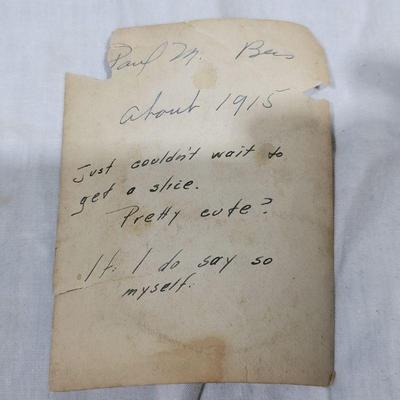 Paul M.
about 1915
Just couldn't wait to
get a slice.
Pretty cute?
If I do say so
myself.